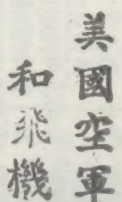 美國空軍
和飛機